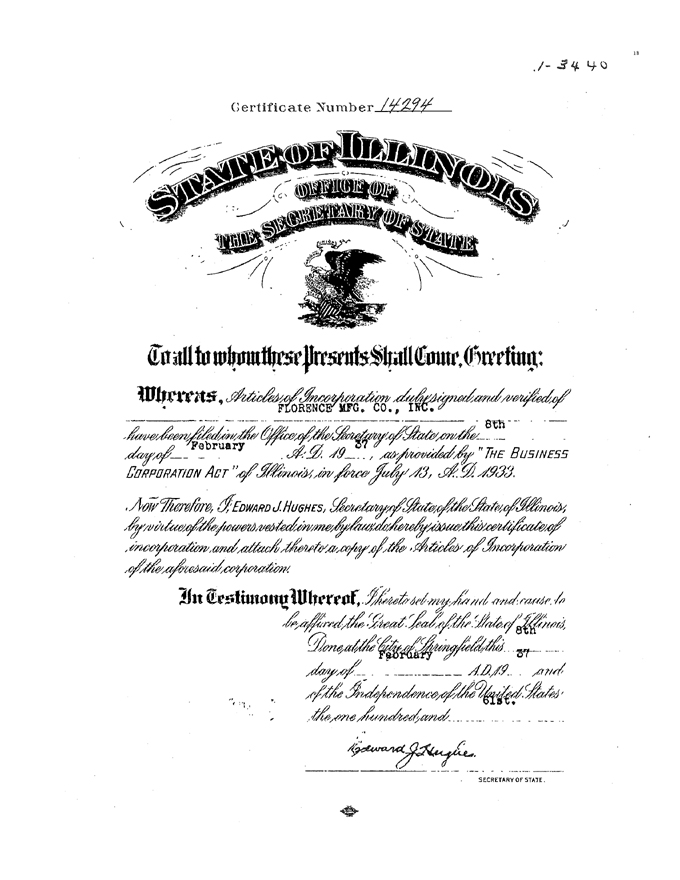 18
1-3440
Certificate Number 14294
STATE OF ILLINOIS
OFFICE OF
THE SECRETARY OF STATE
To all to whom these Presents Shall Come, Greeting:
Whereas, Articles of Incorporation duly signed and verified of
FLORENCE MFG. CO., INC.
have been filed in the Office of the Secretary of State on the 8th
day of February A.D. 19 37, as provided by "THE BUSINESS
CORPORATION ACT" of Illinois, in force July 13, A.D. 1933.
Now Therefore, I, EDWARD J. HUGHES, Secretary of State of the State of Illinois,
by virtue of the powers vested in me by law, do hereby issue this certificate of
incorporation and attach thereto a copy of the Articles of Incorporation
of the aforesaid corporation.
In Testimony Whereof, I hereto set my hand and cause to
be affixed the Great Seal of the State of Illinois,
Done at the City of Springfield this 8th
day of February A.D. 19 37 and
of the Independence of the United States
the one hundred and 61st.
Edward J. Hughes.
SECRETARY OF STATE.